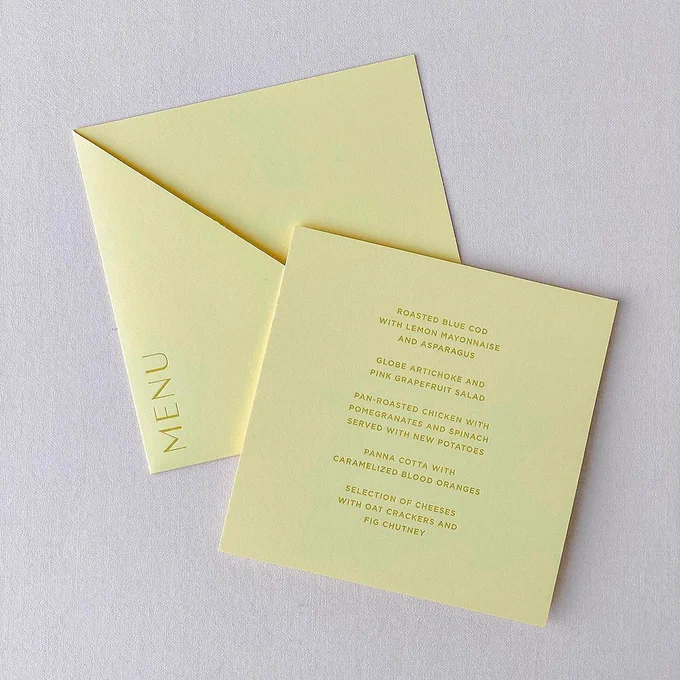 MENU
ROASTED BLUE COD
WITH LEMON MAYONNAISE
AND ASPARAGUS
GLOBE ARTICHOKE AND
PINK GRAPEFRUIT SALAD
PAN-ROASTED CHICKEN WITH
POMEGRANATES AND SPINACH
SERVED WITH NEW POTATOES
PANNA COTTA WITH
CARAMELIZED BLOOD ORANGES
SELECTION OF CHEESES
WITH OAT CRACKERS AND
FIG CHUTNEY